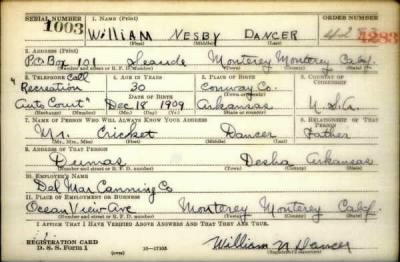 SERIAL NUMBER 1. NAME (Print) ORDER NUMBER
1003 William Nesby Dancer 4283
(First) (Middle) (Last)
2. ADDRESS (Print)
P.O. Box 101 Seaside Monterey Monterey Calif.
(Number and street or R. F. D. number) (Town) (County) (State)
3. TELEPHONE Call 4. AGE IN YEARS 5. PLACE OF BIRTH 6. COUNTRY OF CITIZENSHIP
"Recreation 30 Conway Co.
DATE OF BIRTH (Town or county)
Auto Court" Dec 18 1909 Arkansas U.S.A.
(Exchange) (Number) (Mo.) (Day) (Yr.) (State or country)
7. NAME OF PERSON WHO WILL ALWAYS KNOW YOUR ADDRESS 8. RELATIONSHIP OF THAT PERSON
Mr. Cricket Dancer Father
(Mr., Mrs., Miss) (First) (Middle) (Last)
9. ADDRESS OF THAT PERSON
Dumas Desha Arkansas
(Number and street or R. F. D. number) (Town) (County) (State)
10. EMPLOYER'S NAME
Del Mar Canning Co
11. PLACE OF EMPLOYMENT OR BUSINESS
Ocean View Ave Monterey Monterey Calif.
(Number and street or R. F. D. number) (Town) (County) (State)
I AFFIRM THAT I HAVE VERIFIED ABOVE ANSWERS AND THAT THEY ARE TRUE.
REGISTRATION CARD
D. S. S. Form 1 (over) 16-17105 William N Dancer
(Registrant's signature)